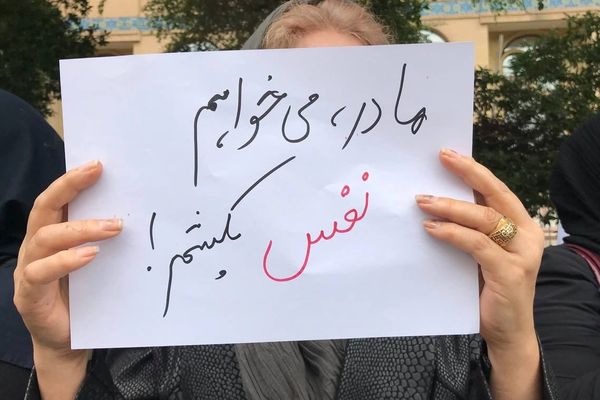 مادر، می خواهم
نفس بکشم!